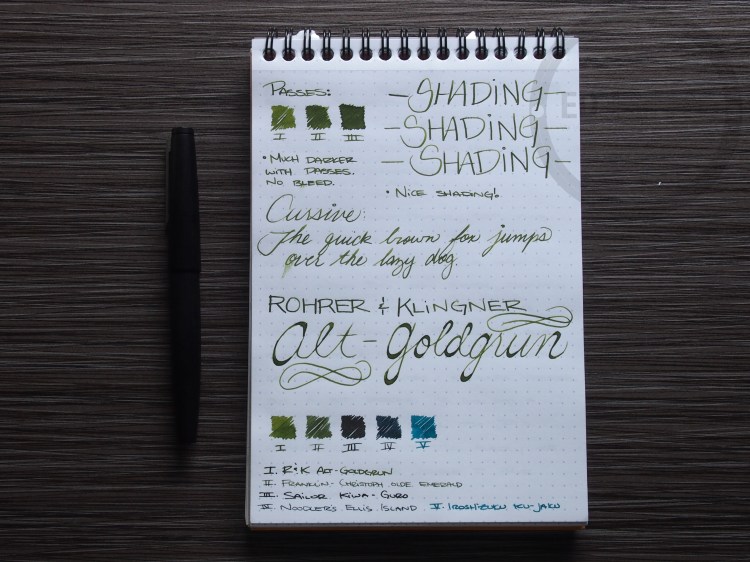 PASSES:
I II III
• MUCH DARKER
WITH PASSES.
NO BLEED.
- SHADING -
- SHADING -
- SHADING -
• NICE SHADING!
Cursive:
The quick brown fox jumps
over the lazy dog.
ROHRER & KLINGNER
Alt-Goldgrun
I II III IV V
I. R&K ALT-GOLDGRUN
II. FRANKLIN-CHRISTOPH OLDE EMERALD
III. SAILOR KIWA-GURO
IV. NOODLER'S ELLIS ISLAND V. IROSHIZUKU KU-JAKU